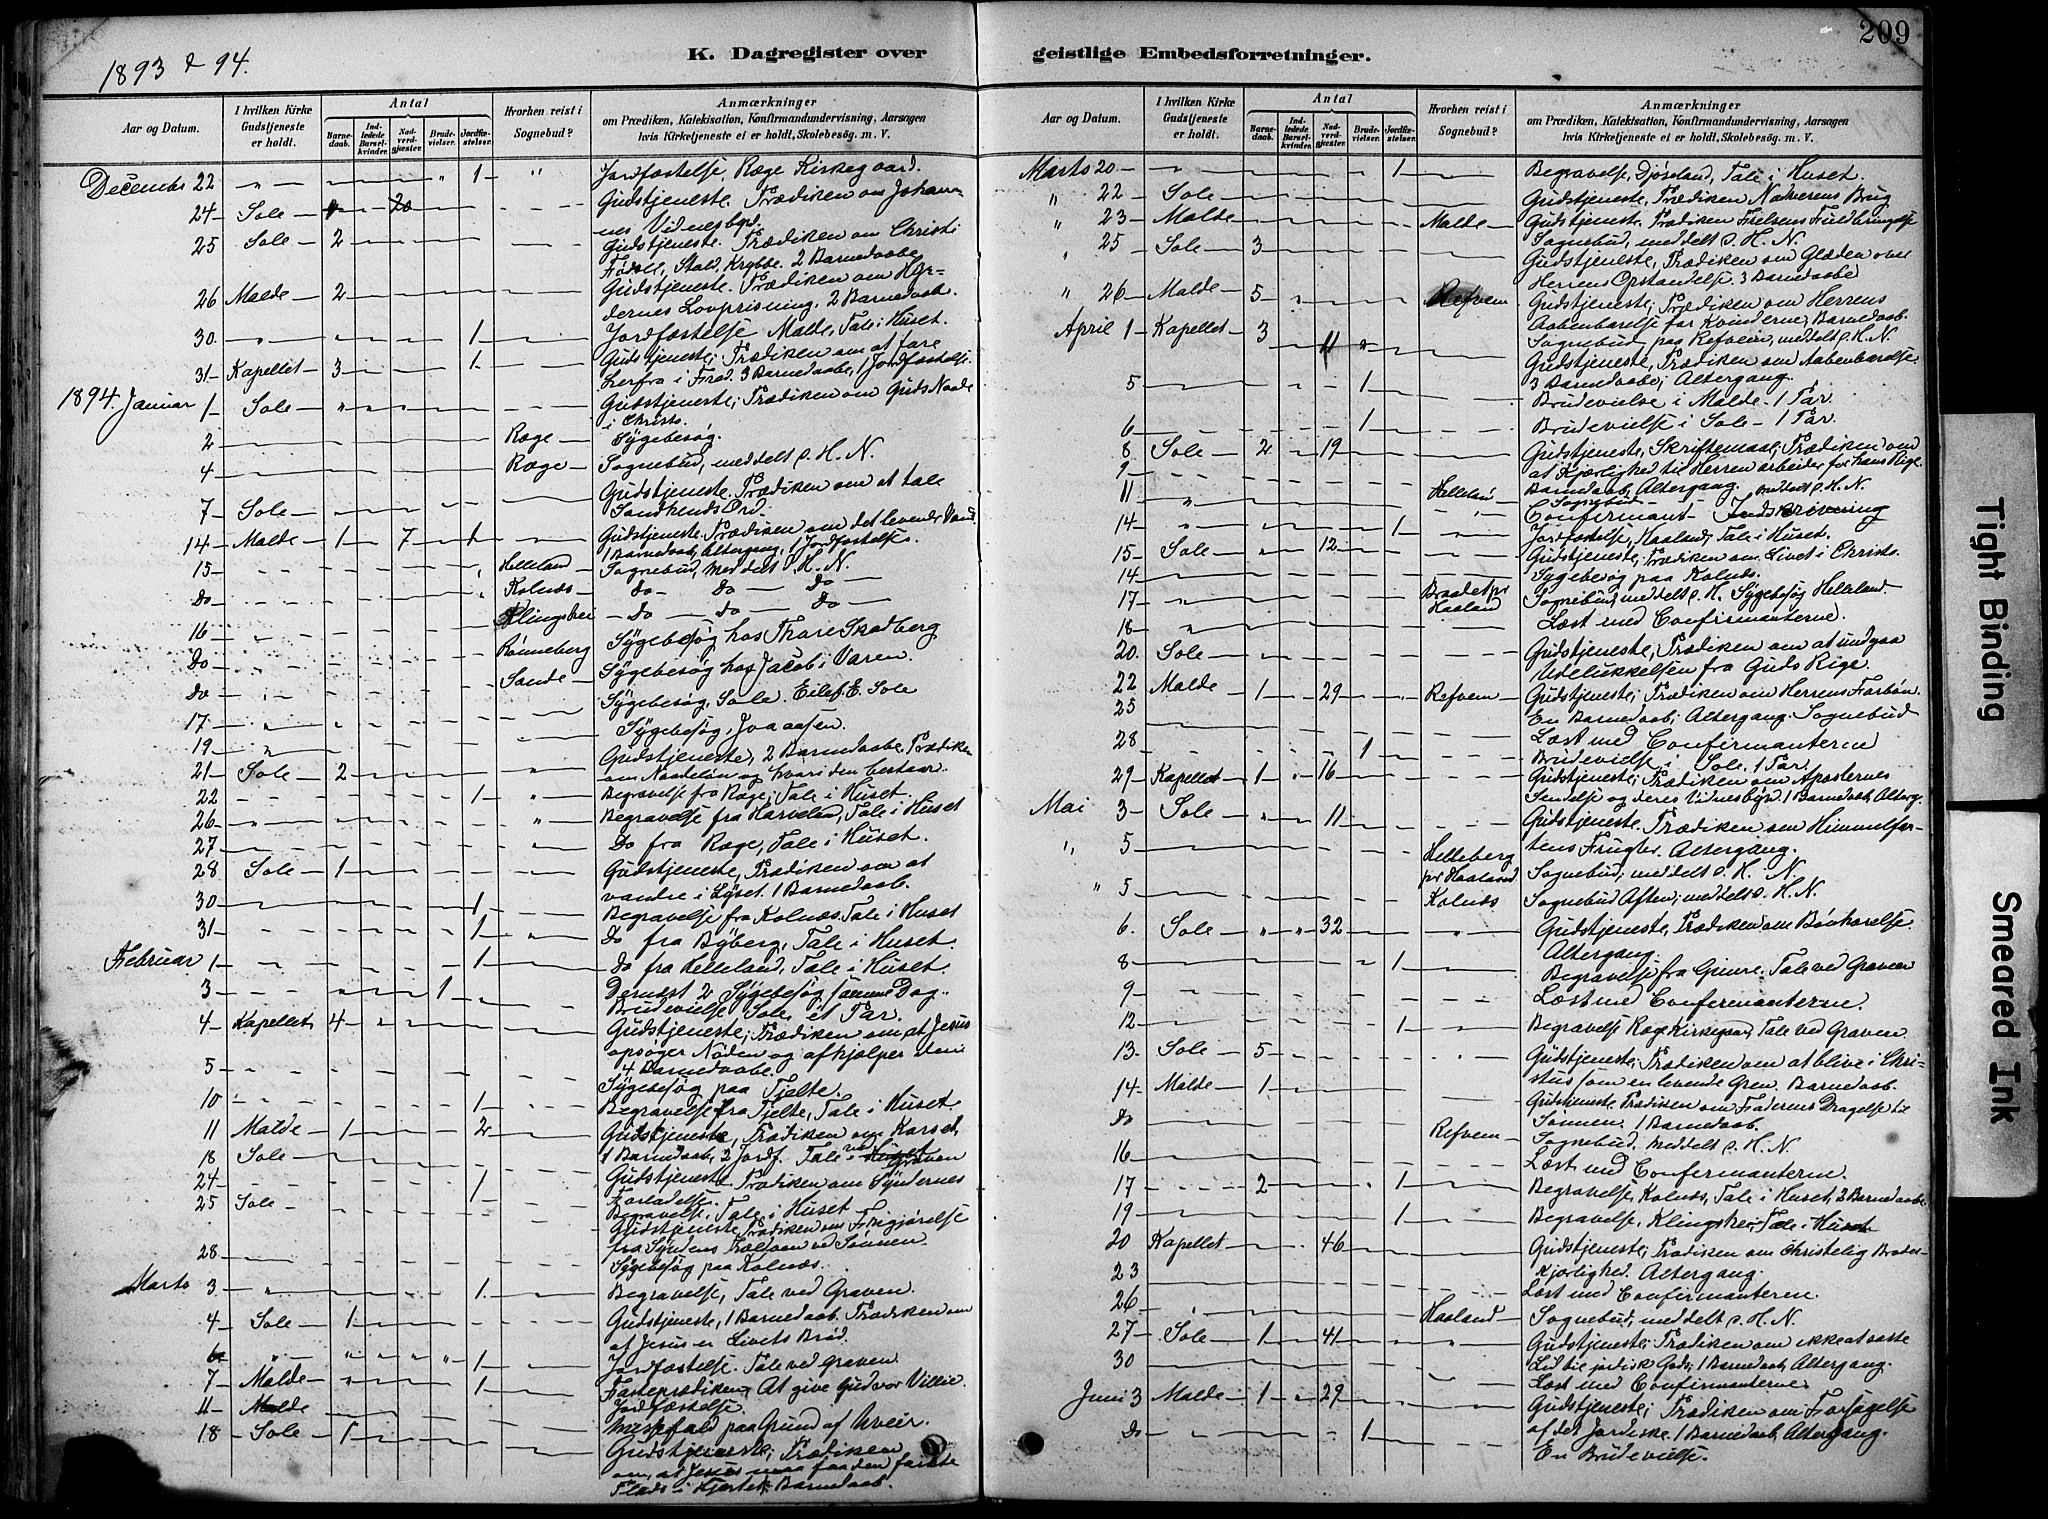 209
1893 & 94.
K. Dagregister over
geistlige Embedsforretninger.
Aar og Datum.
I hvilken Kirke Gudstjeneste er holdt.
Antal
Barnedaab.
Indledede Barselkvinder.
Nadverdgjæster.
Brudevielser.
Jordfæstelser.
Hvorhen reist i Sognebud?
Anmærkninger
om Prædiken, Katekisation, Konfirmandundervisning, Aarsagen
hvis Kirketjeneste ei er holdt, Skolebesøg. m. V.
December 22 — " — 1 — " Jordfæstelse, Ræge Kirkegaard.
24 — Sole — 20 — Gudstjeneste. Prædiken om Johan-
nes Vidnesbyrd.
25 Sole — 2 — Gudstjeneste. Prædiken om Christi
Fødsel, Stald, Krybbe. 2 Barnedaabe
26 Malde — 2 — Gudstjeneste. Prædiken om Hyr-
dernes Lovprisning, 2 Barnedaab.
30 — " — 1 — Jordfæstelse Malde, Tale i Huset.
31 — Kapellet — 3 — 1 — Gudstjeneste; Prædiken om at fare
herfra i Fred. 3 Barnedaabe, 1 Jordfæstelse.
1894. Januar 1 — Sole — Gudstjeneste; Prædiken om Guds Naade
i Christo.
2 — Ræge — Sygebesøg.
4 — Ræge — Sognebud, meddelt d. H. N.
7 — Sole — Gudstjeneste. Prædiken om at tale
Sandheds Ord.
14 — Malde — 1 — 7 — 1 — Gudstjeneste. Prædiken om det levende Vand
1 Barnedaab, Altergang, 1 Jordfæstelse.
15 — Helleland — Sognebud, meddelt d. H. N.
Do — Kolnæs — Do — Do — Do —
16 — Klingshei — Do — Do — Do —
Do — Rønneberg Sygebesøg hos Thore Skadberg
Do — Sande — Sygebesøg hos Jacob i Varen.
17 — " Sygebesøg, Sole. Eilef E. Sole
19 — " Sygebesøg, Joaasen.
21 — Sole — 2 — Gudstjeneste, 2 Barnedaabe. Prædiken
om Naadelön og hvori den bestaar.
22 — 1 — " — Begravelse fra Ræge; Tale i Huset.
26 — " — Begravelse fra Harveland, Tale i Huset
27 — " — Do fra Ræge, Tale i Huset.
28 — Sole — 1 — Gudstjeneste, Prædiken om at
vandre i Lyset. 1 Barnedaab.
30 — 1 — Begravelse fra Kolnæs. Tale i Huset
31 — 1 — Do fra Byberg, Tale i Huset.
Februar 1 — 1 — Do fra Helleland, Tale i Huset.
Dernæst 2 Sygebesøg samme Dag.
3 — 1 — Brudevielse Sole et Par.
4 — Kapellet — 4 — Gudstjeneste; Prædiken om at Jesus
opsøger Nöden og afhjælper den.
4 Barnedaabe.
5 — Sygebesøg paa Tjelte.
10 — 1 — Begravelse fra Tjelte, Tale i Huset
11 — Malde — 1 — 2 — Gudstjeneste, Prædiken om Korset.
1 Barnedaab, 2 Jordf. Tale ved Graven
18 — Sole — Gudstjeneste. Prædiken om Syndernes
Forladelse.
24 — 1 — Begravelse, Tale i Huset
25 — Sole — Gudstjeneste Prædiken om Frigjørelse
fra Syndens Trældom ved Sønnen.
28 — Sygebesøg paa Kolnæs.
Marts 3 — " — 1 — Begravelse, Tale ved Graven.
4 — Sole — 1 — Gudstjeneste, 1 Barnedaab. Prædiken om
at Jesus er Livets Brød.
6 — " — 1 — Jordfæstelse. Tale ved Graven.
7 — Malde — 1 — Fasteprædiken, At give Gud vor Villie.
Jordfæstelse.
11 — Malde — Messefald paa Grund af Uveir.
18 — Sole — 1 — Gudstjeneste; Prædiken
om, at Jesus maa faa den første
Plads i Hjertet; Barnedaab.
Aar og Datum.
I hvilken Kirke Gudstjeneste er holdt.
Antal
Barnedaab.
Indledede Barselkvinder.
Nadverdgjæster.
Brudevielser.
Jordfæstelser.
Hvorhen reist i Sognebud?
Anmærkninger
om Prædiken, Katekisation, Konfirmandundervisning, Aarsagen
hvis Kirketjeneste ei er holdt, Skolebesøg. m. V.
Marts 20 — " — 1 — Begravelse, Djøseland, Tale i Huset.
" 22 — Sole — Gudstjeneste, Prædiken Nadverens Brug
" 23 — Malde — Malde — Gudstjeneste. Prædiken Frelsens Fuldbringelse
Sognebud, meddelt d. H. N.
" 25 — Sole — 3 — Gudstjeneste, Prædiken om Glæden over
Herrens Opstandelse. 3 Barnedaabe
" 26 — Malde — 5 — Refvem Gudstjeneste; Prædiken om Herrens
Aabenbarelse for Kvinderne, Barnedaab.
Sognebud paa Refveim, meddelt d. H. N.
April 1 — Kapellet — 3 — 11 — Gudstjeneste, Prædiken om Aabenbarelse
3 Barnedaabe; Altergang.
5 — 1 — Brudevielse i Malde — 1 Par.
6 — 1 — Brudevielse i Sole — 1 Par.
8 Sole — 2 — 19 — Gudstjeneste, Skriftemaal; Prædiken om
at Kjærlighed til Herren arbeider for hans Rige.
Barnedaab, Altergang.
9 — Helleland — Sognebud meddelt d. H. N.
11 — " — Confirmant — Indskrivning
14 — " — 1 — Jordfæstelse, Haaland, Tale i Huset.
15 — Sole — 12 — Gudstjeneste; Prædiken om Livet i Christo.
14 — Sygebesøg paa Kolnæs.
17 — " — Braadet pr Haaland Sognebud, meddelt d. H. Sygebesøg Helleland.
18 — " — Læst med Confirmanterne.
20. Sole — Gudstjeneste, Prædiken om at undgaa
Udelukkelsen fra Guds Rige.
22 Malde — 1 — 29 — Refvem — Gudstjeneste; Prædiken om Herrens Forbøn.
En Barnedaab; Altergang. Sognebud
25 — Læst med Confirmanterne
28 — 1 — Brudevielse i Sole, 1 Par.
29 — Kapellet — 1 — 16 — Gudstjeneste; Prædiken om Apostlernes
Sendelse og deres Vidnesbyrd. 1 Barnedaab, Alterg.
Mai 3 — Sole — 11 — Gudstjeneste. Prædiken om Himmelfar-
tens Frugter. Altergang.
" 5 — Helleberg pr Haaland Sognebud; meddelt d. H. N.
" 5 — Kolnæs Sognebud Aften; meddelt d. H. N.
6. Sole — 32 — Gudstjeneste, Prædiken om Bönhørelse.
Altergang.
8 — 1 — Begravelse fra Gimre. Tale ved Graven
9 — Læst med Confirmanterne.
12 — 1 — Begravelse Ræge Kirkegaard, Tale ved Graven.
13. Sole — 5 — Gudstjeneste; Prædiken om at blive i Chri-
stus som en levende Gren. Barnedaab.
14 — Malde — 1 — Gudstjeneste Prædiken om Faderens Dragelse til
Sønnen. 1 Barnedaab.
Do — Refvem — Sognebud, meddelt d. H. N.
16 — Læst med Confirmanterne.
17 — 2 — 1 — Begravelse, Kolnæs, Tale i Huset, 2 Barnedaabe.
19 — 1 — Begravelse, Klingshei; Tale i Huset
20 Kapellet — 46 — Gudstjeneste; Prædiken om Christelig Broder-
kjærlighed. Altergang.
23 — Læst med Confirmanterne.
26 — Haaland — Sognebud, meddelt d. H. N.
27 — Sole — 1 — 41 — Gudstjeneste; Prædiken om ikke at sætte
Lid til jordisk Gods; 1 Barnedaab, Altergang.
30 — Læst med Confirmanterne.
Juni 3 Malde — 1 — 29 — Gudstjeneste; Prædiken om Forsagelse
af det Jordiske. 1 Barnedaab, Altergang.
Do — 1 — En Brudevielse.
Tight Binding
Smeared Ink